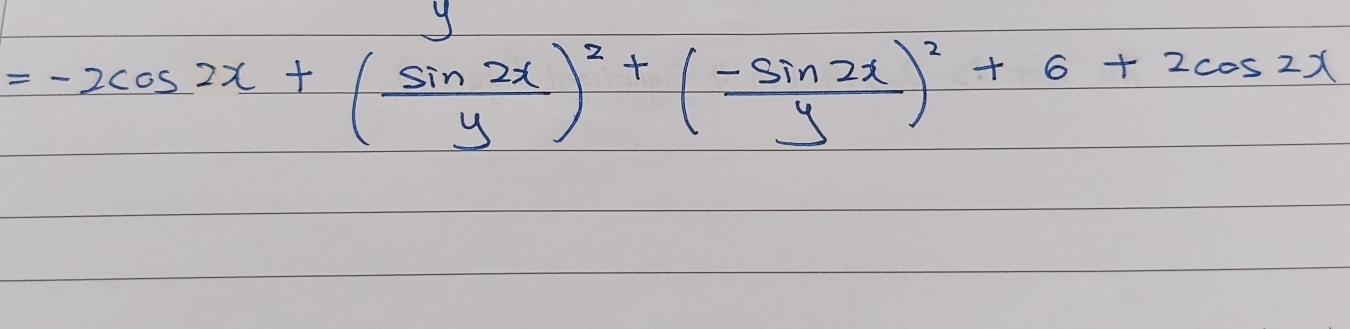 y
= -2cos 2x + (sin 2x / y)² + (-sin 2x / y)² + 6 + 2cos 2x